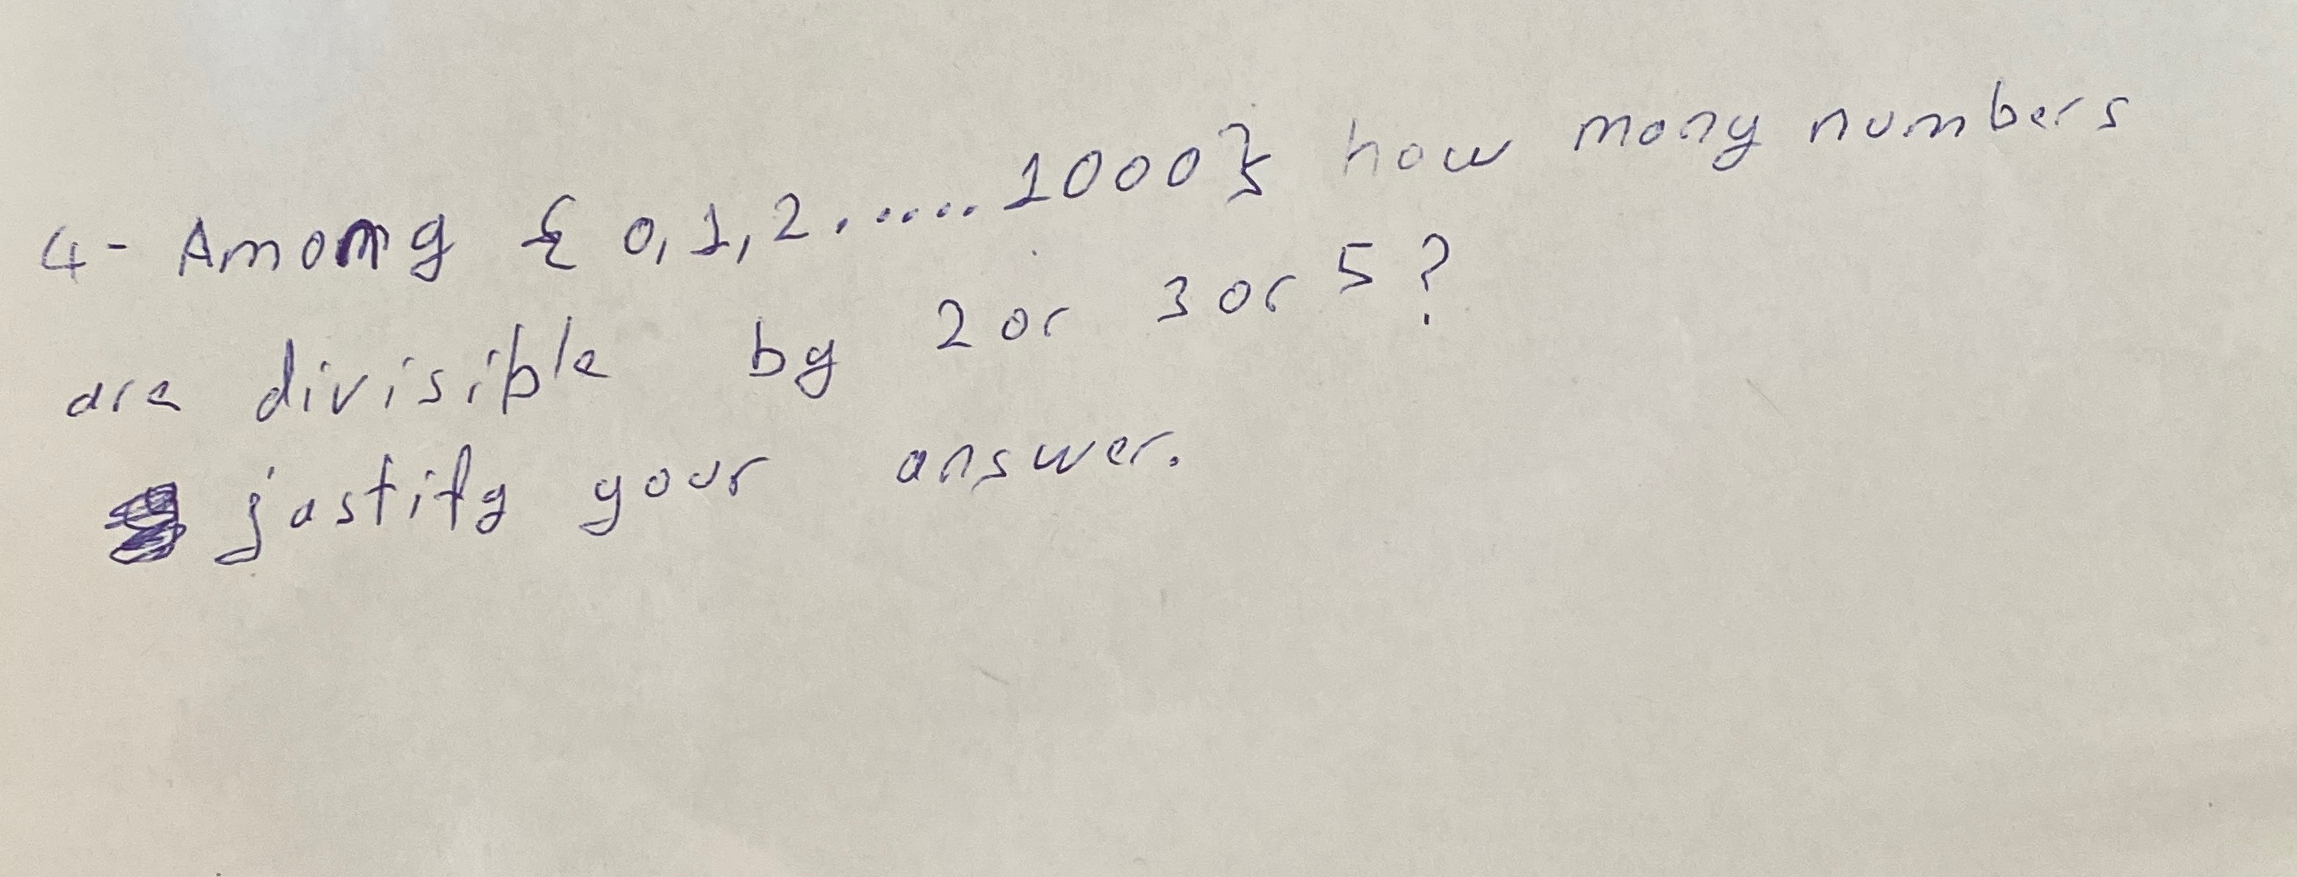 4- Among {0,1,2......1000} how many numbers
are divisible by 2 or 3 or 5?
justify your answer.